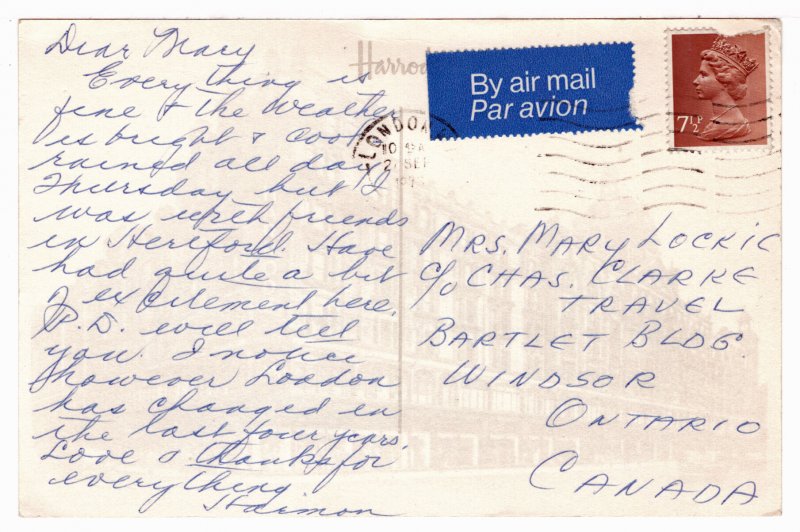 Dear Mary
Everything is
fine & the weather
is bright & cool
rained all day
Thursday but I
was with friends
in Hereford. Have
had quite a bit
of excitement here,
P.D. will tell
you. I notice
however London
has changed in
the last four years.
Love & thanks for
everything
Harrod
By air mail
Par avion
LONDON
7½P
MRS. MARY LOCKIE
c/o CHAS. CLARKE
TRAVEL
BARTLET BLDG.
WINDSOR
ONTARIO
CANADA